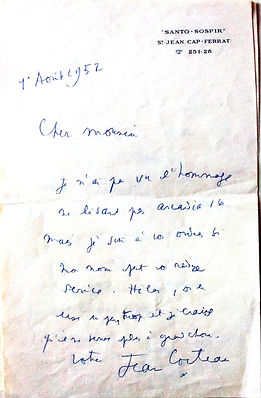 "SANTO-SOSPIR"
St-JEAN-CAP-FERRAT
☎ 251-26
1° Août 1952
Cher monsieur
Je n'ai pas vu l'hommage
ne lisant pas
mais je suis à vos ordres si
mon nom peut vous rendre
service. Hélas, on
use un peu trop et je crains
qu'il ne serve plus à grand chose.
votre Jean Cocteau